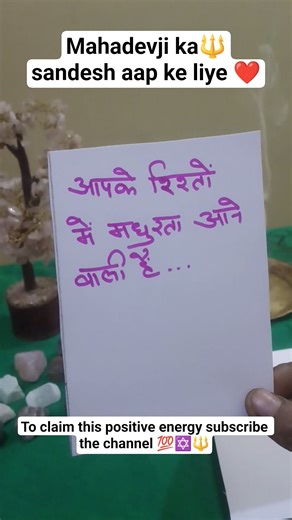 Mahadevji ka🔱
sandesh aap ke liye ❤️
आपके रिश्तों
में मधुरता आने
वाली हैं...
To claim this positive energy subscribe
the channel 💯✡️🔱